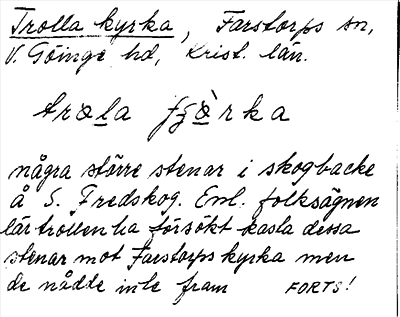 Trolla kyrka, Farstorps sn,
V. Göinge hd, Krist. län.
træla fʒæ̀rka
några större stenar i skogbacke
å S. Fredskog. Enl. folksägnen
lär trollen ha försökt kasta dessa
stenar mot Farstorps kyrka men
de nådde inte fram FORTS!